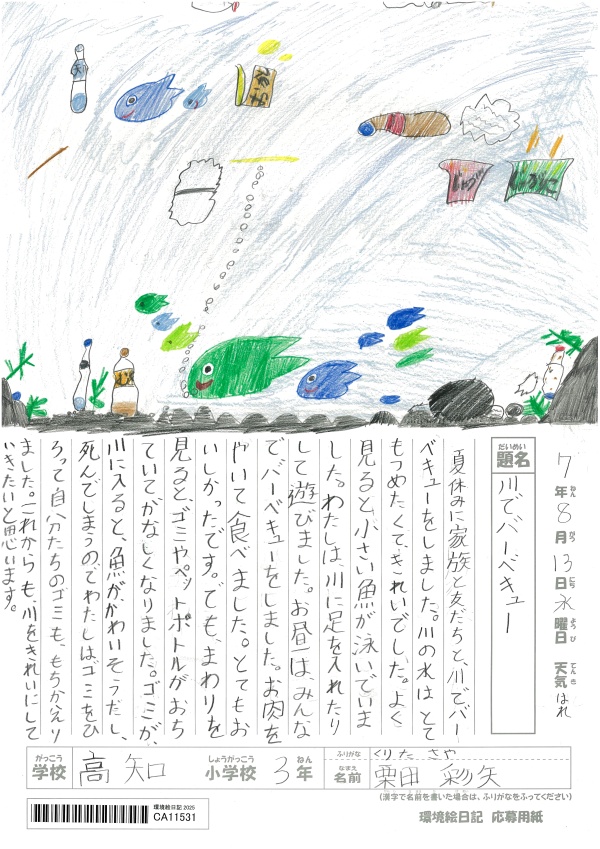 じゃが
7年8月13日水曜日 天気はれ
ねん がつ にち ようび てんき
だいめい
題名
川でバーベキュー
夏休みに家族と友だちと、川でバー
ベキューをしました。川の水はとて
もつめたくて、きれいでした。よく
見ると小さい魚が泳いでいま
した。わたしは、川に足を入れたり
して遊びました。お昼は、みんな
でバーベキューをしました。お肉を
やいて食べました。とてもお
いしかったです。でも、まわりを
見ると、ゴミやペットボトルがおち
ていてかなしくなりました。ゴミが、
川に入ると、魚が、かわいそうだし、
死んでしまうのでわたしはゴミをひ
ろって自分たちのゴミも、もちかえり
ました。これからも、川をきれいにして
いきたいと思います。
がっこう しょうがっこう ねん ふりがな くりた さや
学校 高知 小学校 3年 なまえ 名前 栗田 彩矢
(漢字で名前を書いた場合は、ふりがなをふってください)
環境絵日記 2025
CA11531
環境絵日記 応募用紙